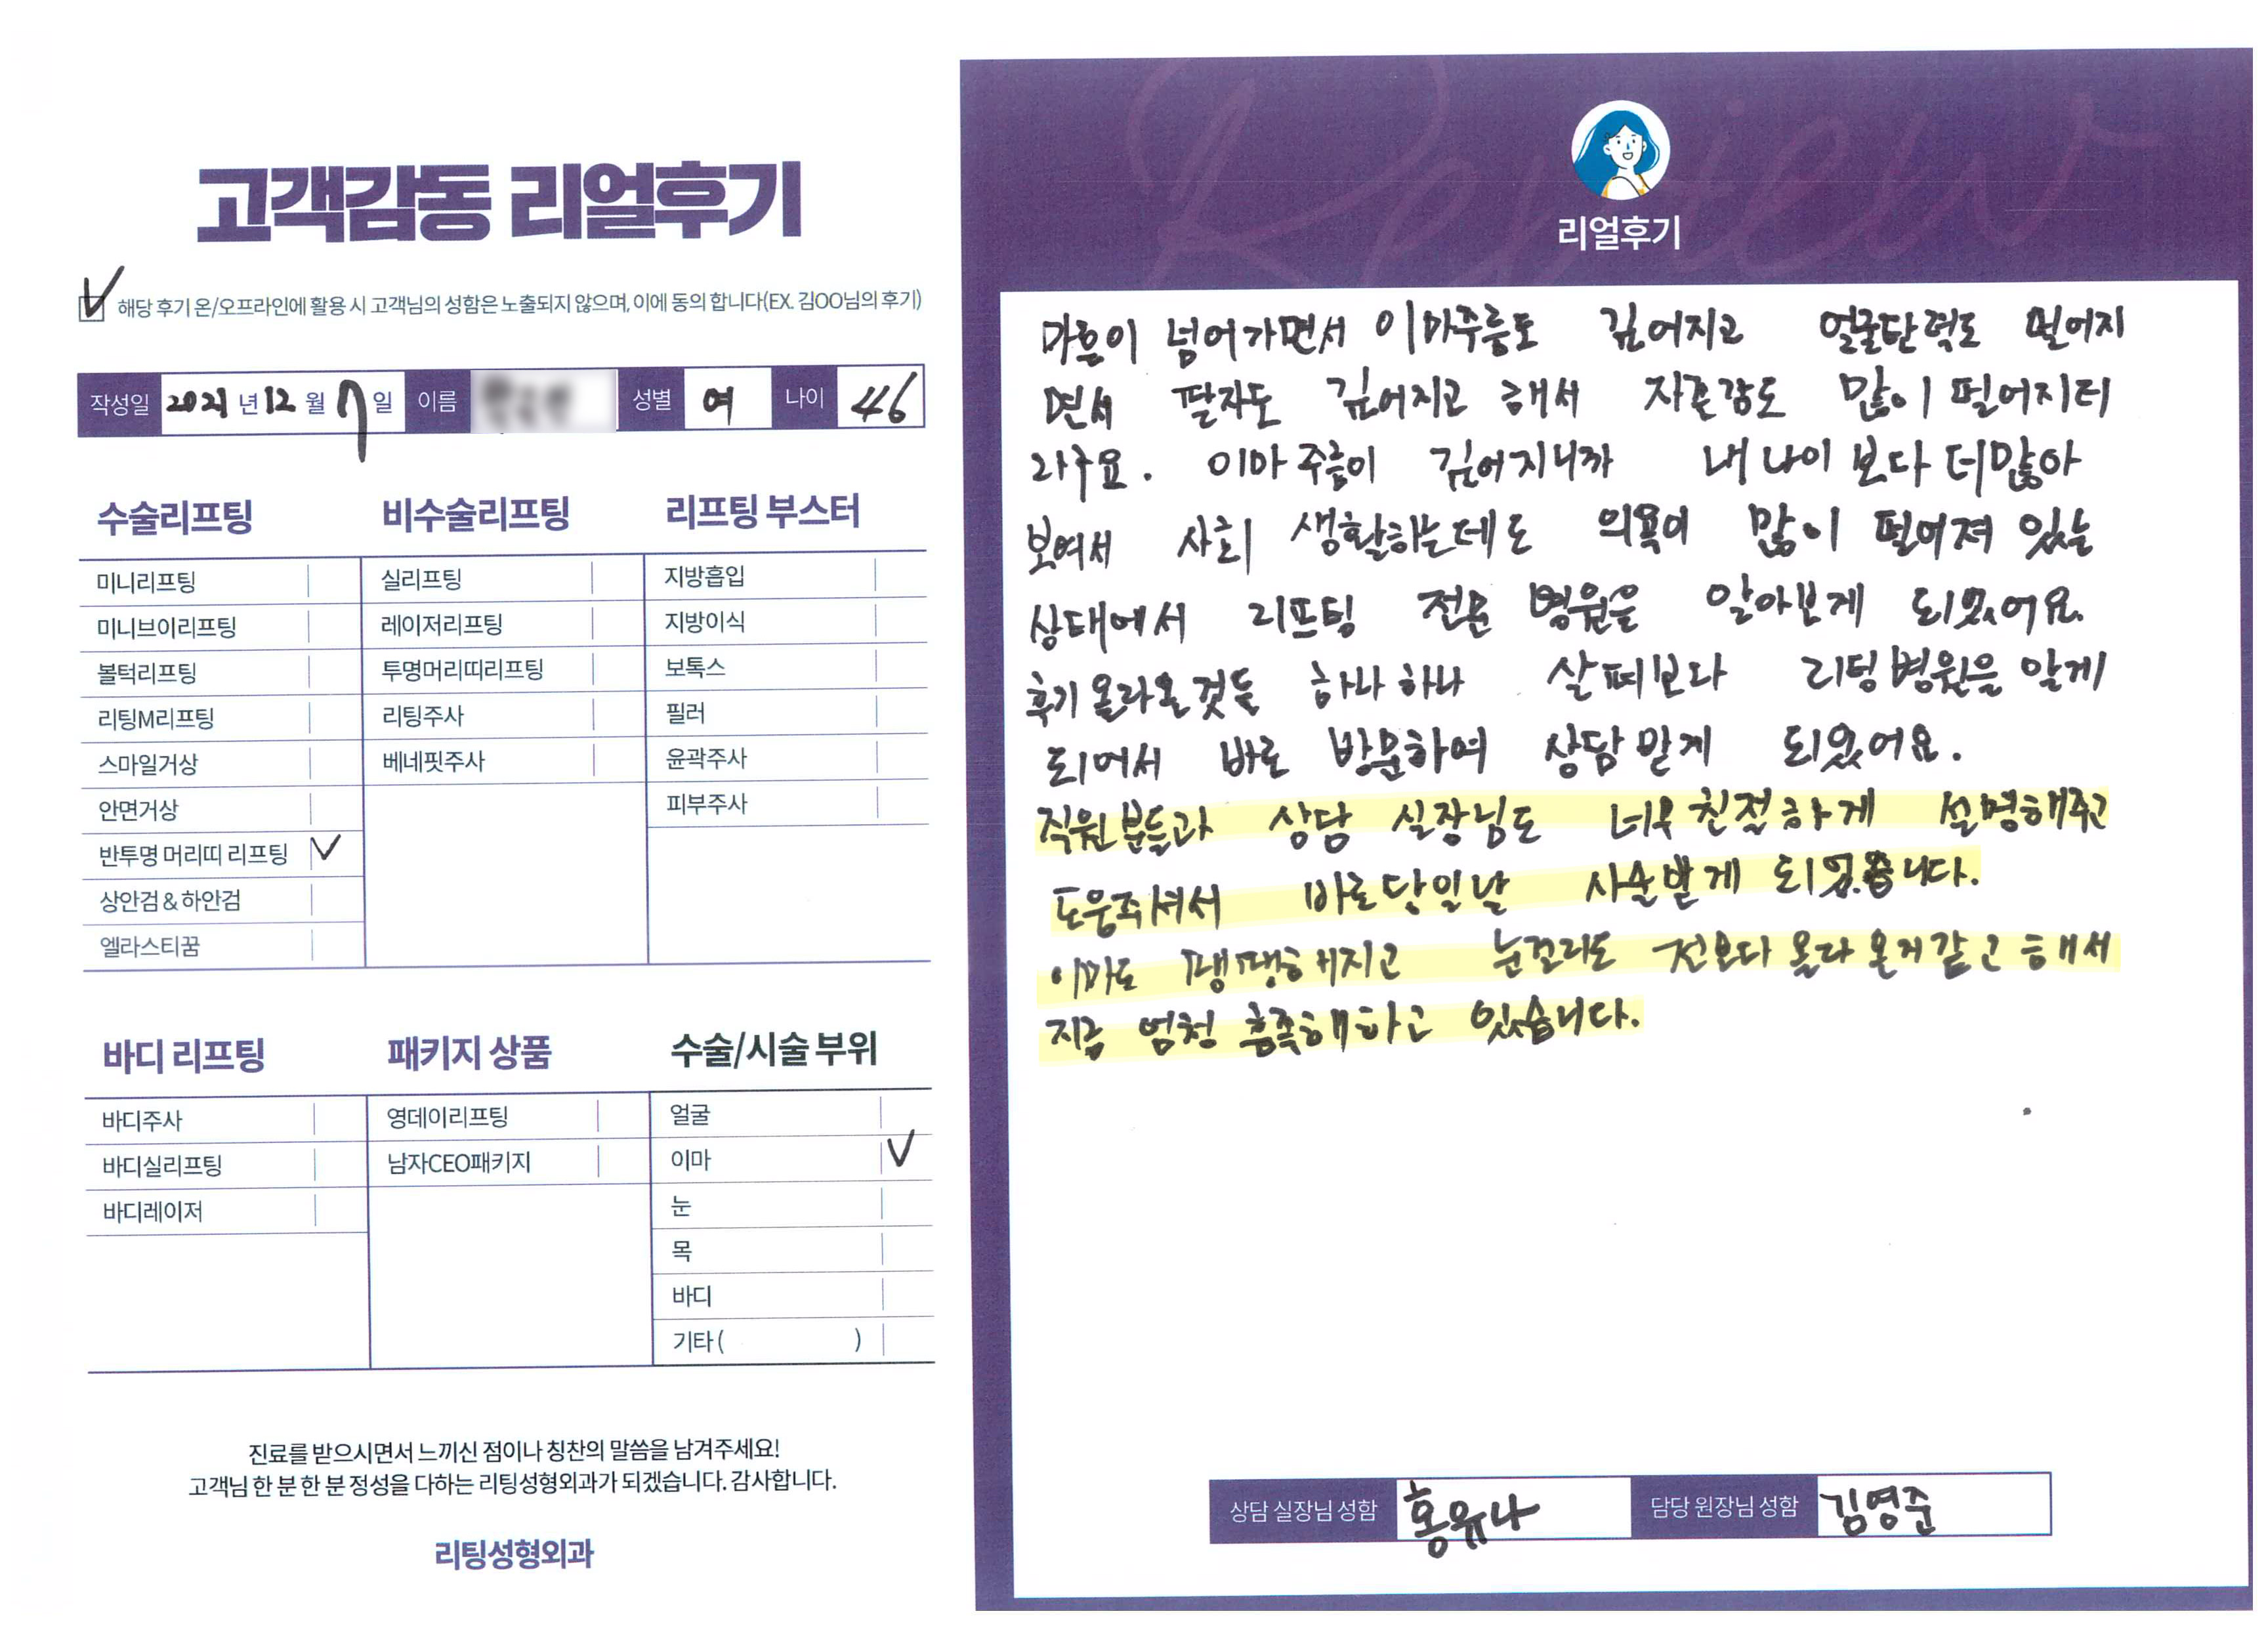 고객감동 리얼후기
해당 후기 온/오프라인에 활용 시 고객님의 성함은 노출되지 않으며, 이에 동의 합니다(EX. 김OO님의 후기)
작성일 2021 년 12 월 7 일 이름 성별 여 나이 46
수술리프팅
미니리프팅
미니브이리프팅
볼턱리프팅
리팅M리프팅
스마일거상
안면거상
반투명 머리띠 리프팅
상안검 & 하안검
엘라스티꿈
비수술리프팅
실리프팅
레이저리프팅
투명머리띠리프팅
리팅주사
베네핏주사
리프팅 부스터
지방흡입
지방이식
보톡스
필러
윤곽주사
피부주사
바디 리프팅
바디주사
바디실리프팅
바디레이저
패키지 상품
영데이리프팅
남자CEO패키지
수술/시술 부위
얼굴
이마
눈
목
바디
기타 ( )
진료를 받으시면서 느끼신 점이나 칭찬의 말씀을 남겨주세요!
고객님 한 분 한 분 정성을 다하는 리팅성형외과가 되겠습니다. 감사합니다.
리팅성형외과
Review
리얼후기
마흔이 넘어가면서 이마주름도 깊어지고 얼굴탄력도 떨어지
면서 팔자도 깊어지고 해서 자존감도 많이 떨어지더
라구요. 이마 주름이 깊어지니까 내 나이 보다 더 많아
보여서 사회 생활하는데도 의욕이 많이 떨어져 있는
상태에서 리프팅 전문 병원을 알아보게 되었어요.
후기 올라온것들 하나 하나 살펴보다 리팅병원을 알게
되어서 바로 방문하여 상담 받게 되었어요.
직원분들과 상담 실장님도 너무 친절하게 설명해주고
도움주셔서 바로 당일날 시술받게 되었습니다.
이마도 땡땡해지고 눈꼬리도 전보다 올라온거 같고 해서
지금 엄청 흡족해하고 있습니다.
상담 실장님 성함 홍유나 담당 원장님 성함 김영준